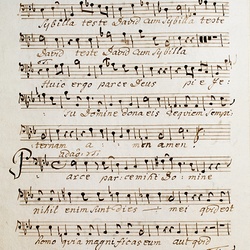 Sybilla teste David cum Sybilla teste
David teste David cum Sybilla
Huic ergo parce Deus pie Je-
su Domine dona eis Requiem sempi-
ternam a men amen
Adagio
Parce parce mihi Domine
nihil enim sunt dies mei quid est
homo quia magnificas eum aut quid